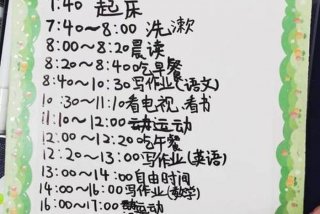 1:40 起床
7:40~8:00 洗漱
8:00~8:20晨读
8:20~8:40吃早餐
8:40~10:30写作业(语文)
10:30~11:10看电视、看书
11:10~12:00 运动
12:00~12:20吃午餐
12:20~13:00写作业(英语)
13:00~14:00自由时间
14:00~16:00写作业(数学)
16:00~17:00运动